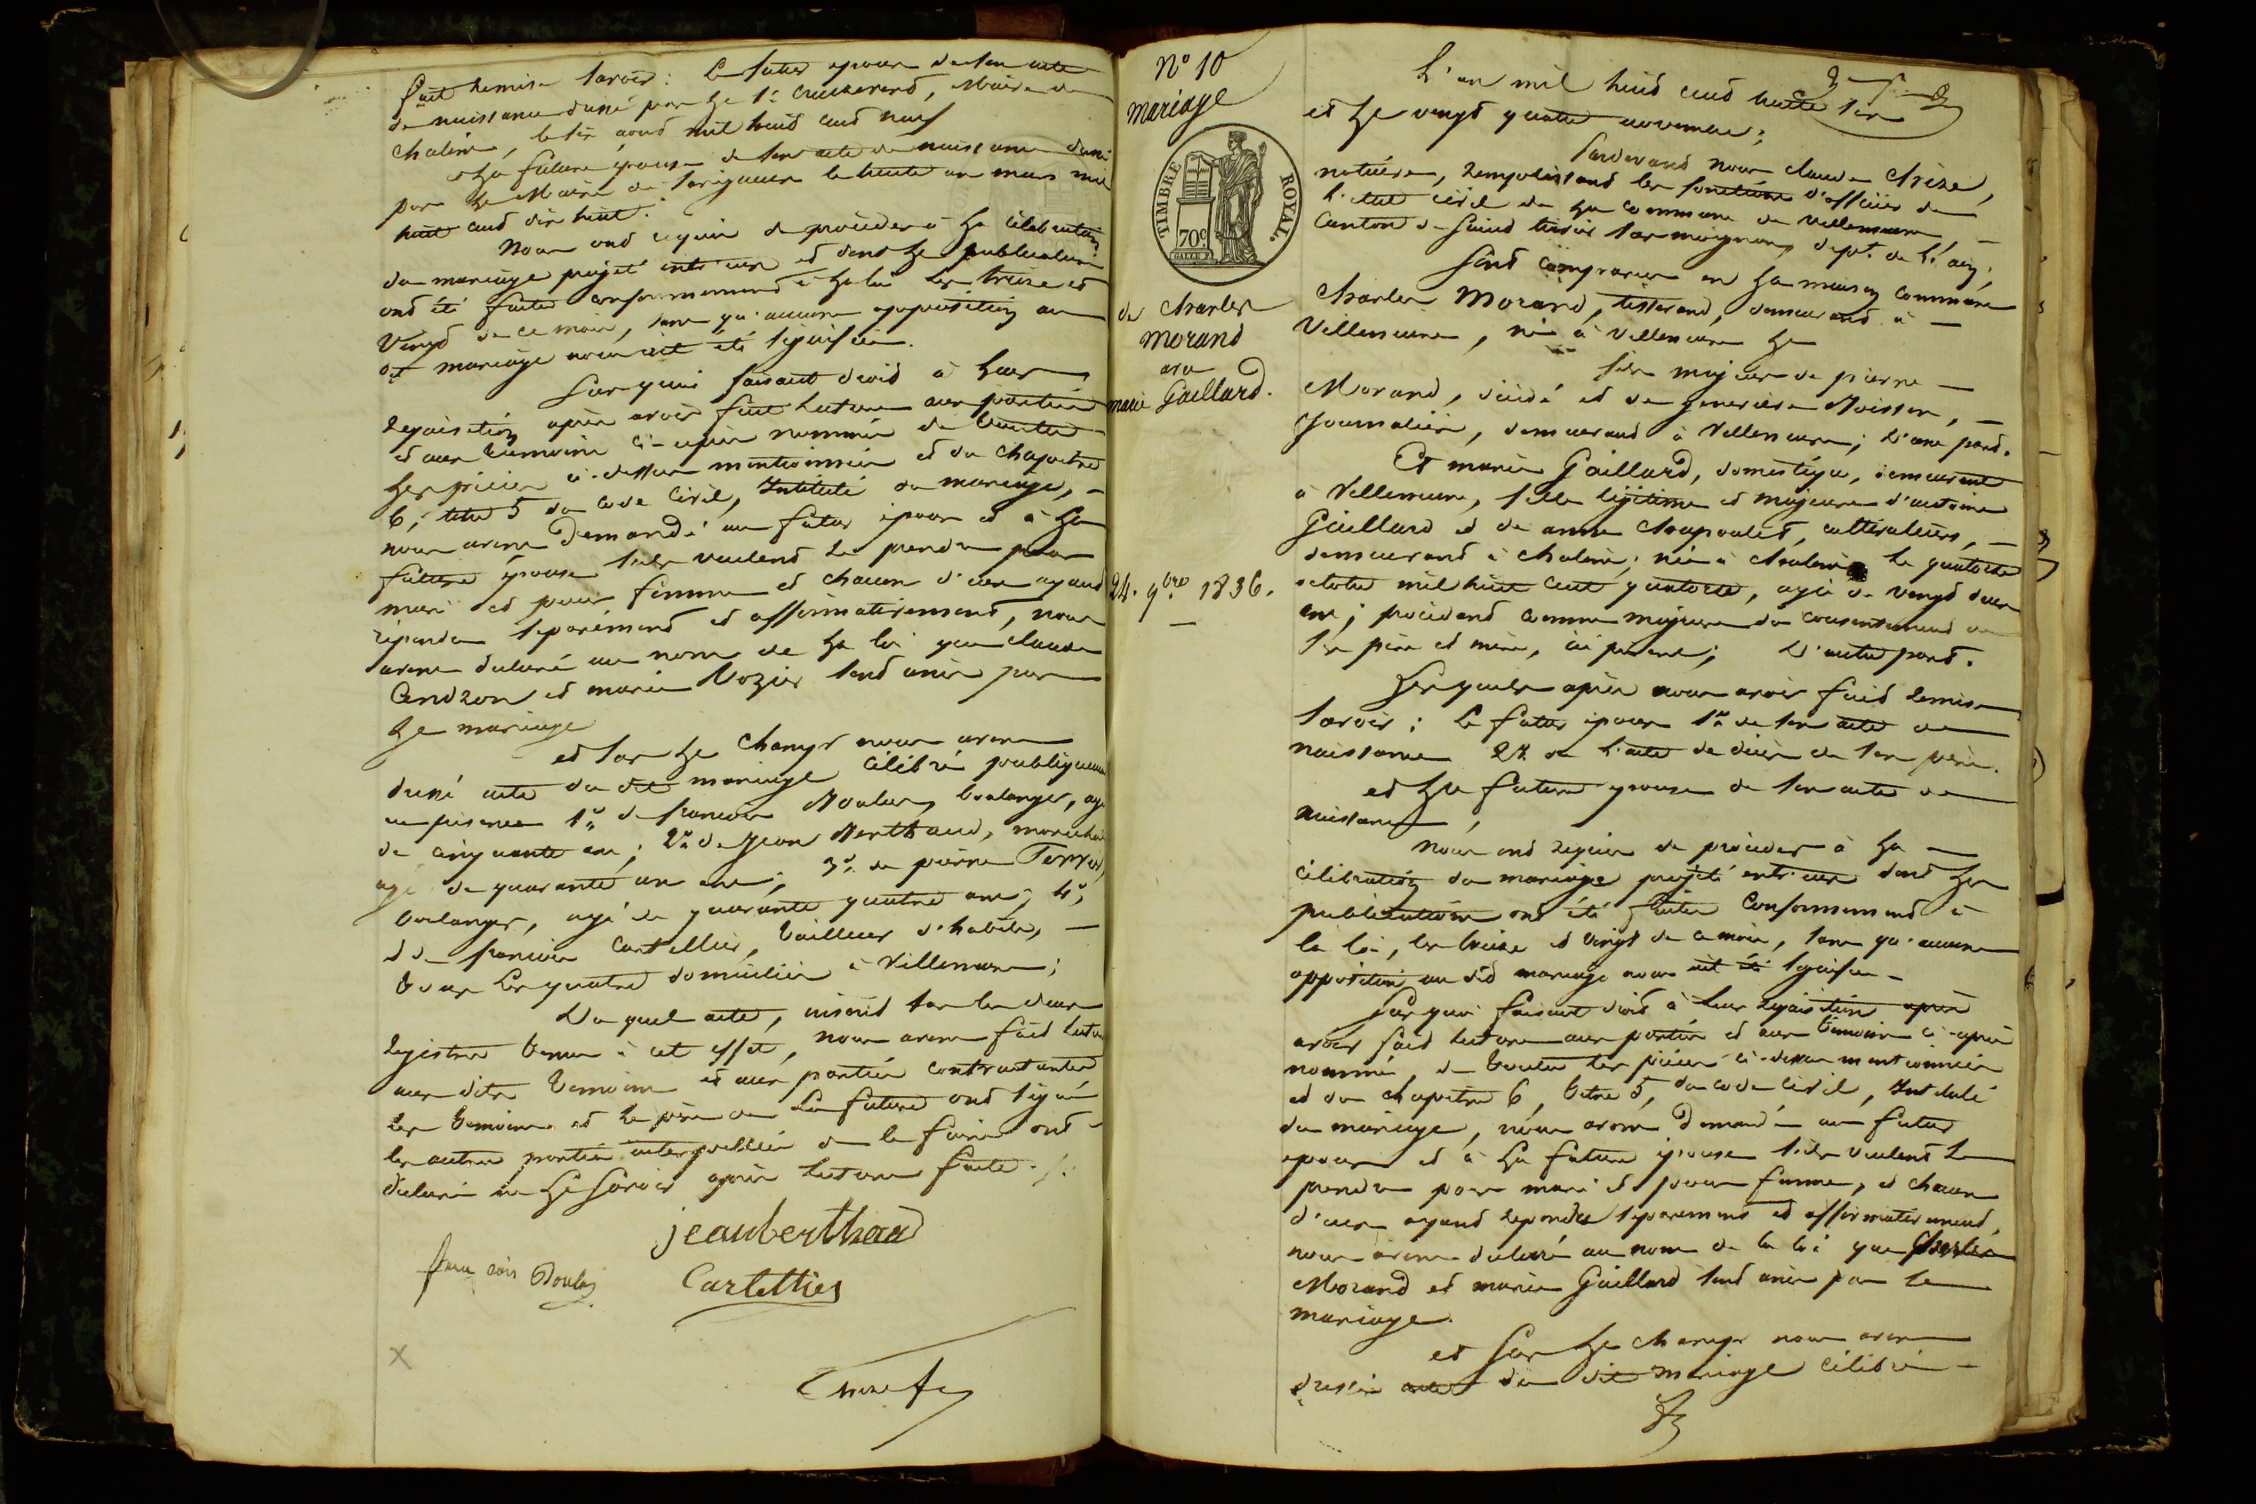 fait remise savoir : le futur epoux de son acte
de naissance dressé par le Sr , Maire de
Chaleins, le six aout mil huit cent neuf
et la future épouse de son acte de naissance dressé
par le Maire de Savigneux le trente un mars mil
huit cent dix huit.
Nous ont requis de proceder à la célébration
du mariage projeté entr'eux et dont les publications
ont été faites conformement à la loi les treize et
vingt de ce mois, sans qu'aucune opposition au
dit mariage nous ait été signifiée.
Sur quoi faisant droit à leur
requisition après avoir fait lecture aux parties
et aux témoins ci-après nommés de toutes
les pièces ci-dessus mentionnées et du chapitre
6, titre 5 du code civil, Intitulé du mariage,
nous avons demandé au futur époux et à la
future épouse s'ils veulent se prendre pour
mari et pour femme et chacun d'eux ayant
répondu séparément et affirmativement, nous
avons déclaré au nom de la loi que claude
et marie sont unis par
le mariage
et sur le champ nous avons
dressé acte du dit mariage célébré publiquement
en présence 1° de francois , boulanger, agé
de cinquante ans ; 2° de Jean Berthaud, marechal
agé de quarante un ans ; 3° de pierre
boulanger, agé de quarante quatre ans ; 4°,
de francois Cartellier, tailleur d'habits,
tous les quatre domiciliés à Villeneuve ;
Du quel acte, inscrit sur les deux
registres tenus à cet effet, nous avons fait lecture
aux dits temoins et aux parties contractantes
les temoins et le père de la future ont signé
les autres parties interpellées de le faire ont
déclaré ne le savoir après lecture faite.
jean berthaud
francois Cartellier
N° 10
Mariage
TIMBRE ROYAL.
70c
de Charles
Morand
avec
marie Gaillard.
24. 9bre 1836.
L'an mil huit cent trente six
et le vingt quatre novembre ;
Pardevant nous claude ,
notaire, remplissant les fonctions d'officier de
l'etat civil de la commune de villeneuve
canton de Saint trivier sur moignans, dept. de l'ain ;
Sont comparus en la maison commune
Charles Morand, tisserand, demeurant à
Villeneuve, né à Villeneuve le
fils majeur de pierre
Morand, décédé et de genevieve ,
Journalière, demeurant à Villeneuve ; d'une part.
Et marie Gaillard, domestique, demeurant
à Villeneuve, fille légitime et majeure d'antoine
Gaillard et de anne , cultivateurs,
demeurant à chaleins ; née à chaleins le quatorze
octobre mil huit cent quatorze, agée de vingt deux
ans ; procédant comme majeure du consentement de
ses père et mère, ici présens ; D'autre part.
Lesquels après nous avoir fait remise
savoir : le futur époux 1° de son acte de
naissance 2° de l'acte de décès de son père.
et la future épouse de son acte de
naissance,
Nous ont requis de procéder à la
célébration du mariage projeté entr'eux dont les
publications ont été faites conformement à
la loi, les treize et vingt de ce mois, sans qu'aucune
opposition au dit mariage nous ait été signifiée
Sur quoi faisant droit à leur requisition après
avoir fait lecture aux parties et aux témoins ci-après
nommés, de toutes les pièces ci-dessus mentionnées
et du chapitre 6, titre 5, du code civil, Intitulé
du mariage, nous avons demandé au futur
epoux et à la future épouse s'ils veulent se
prendre pour mari et pour femme, et chacun
d'eux ayant repondu séparement et affirmativement,
nous avons déclaré au nom de la loi que Charles
Morand et marie Gaillard sont unis par le
mariage.
et sur le champ nous avons
dressé acte du dit mariage célébré